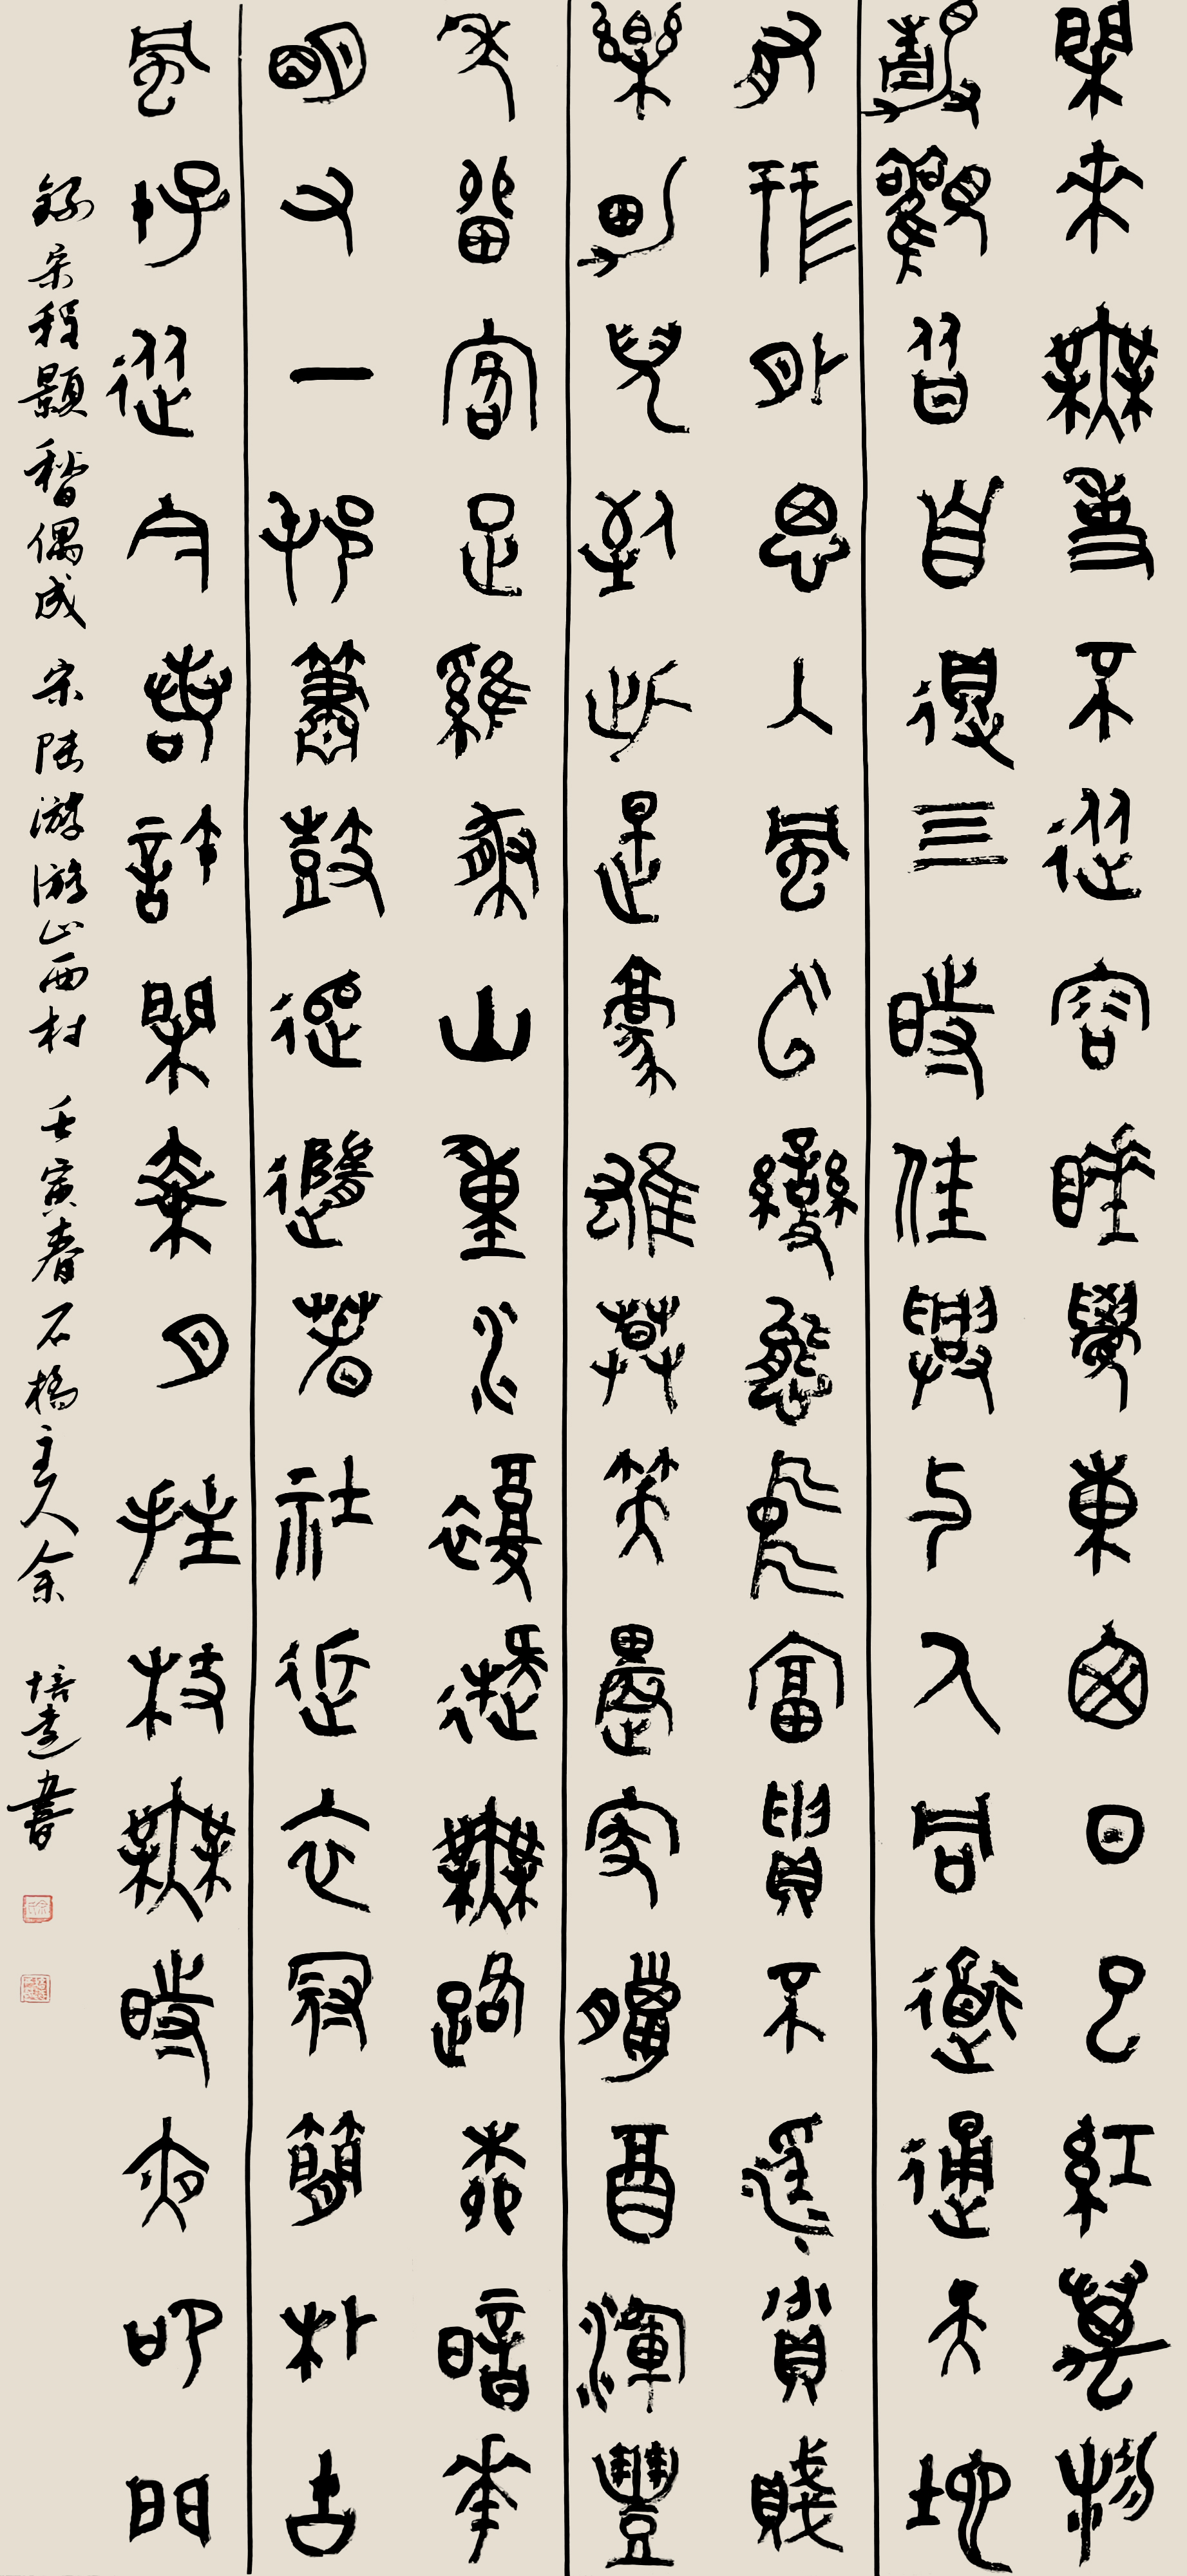 閑來無事不從容睡覺東囪日已紅萬物
靜觀皆自得三時佳興与人同道通天地
有形外思入風雲變態中富貴不淫貧賤
樂男兒到此是豪雄莫笑農家臘酉渾豐
年留客足雞豚山重水複疑無路柳暗華
明又一邨簫鼓追隨春社近衣冠簡朴古
風存從今若許閑乘月拄枝無時夜叩門
錄宋程顥秋日偶成 宋陸游游山西村 壬寅春石橋主人余培達書